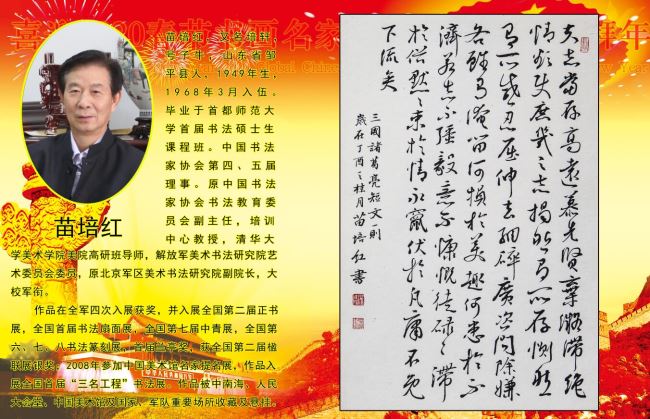 苗培红，又名培轩，
号子牛，山东省邹
平县人，1949年生，
1968年3月入伍。
毕业于首都师范大
学首届书法硕士生
课程班。中国书法
家协会第四、五届
理事。原中国书法
家协会书法教育委
员会副主任，培训
中心教授，清华大
学美术学院美院高研班导师，解放军美术书法研究院艺
术委员会委员，原北京军区美术书法研究院副院长，大
校军衔。
作品在全军四次入展获奖，并入展全国第二届正书
展，全国首届书法扇面展，全国第七届中青展，全国第
六、七、八书法篆刻展，首届兰亭奖，获全国第二届楹
联展银奖。2008年参加中国美术馆名家提名展，作品入
展全国首届“三名工程”书法展。作品被中南海、人民
大会堂、中国美术馆及国家、军队重要场所收藏及悬挂。
苗培红
夫志當存高遠慕先賢棄凝滯絶
情欲使庶幾之志揭然有所存惻然
有所感忍屈伸去細碎廣咨問除嫌
吝雖有淹留何損於美趣何患於不
濟若志不強毅意不慷慨徒碌々滯
於俗默々束於情永竄伏於凡庸不免
下流矣
三國諸葛亮短文一則
歲在丁酉之桂月苗培红書